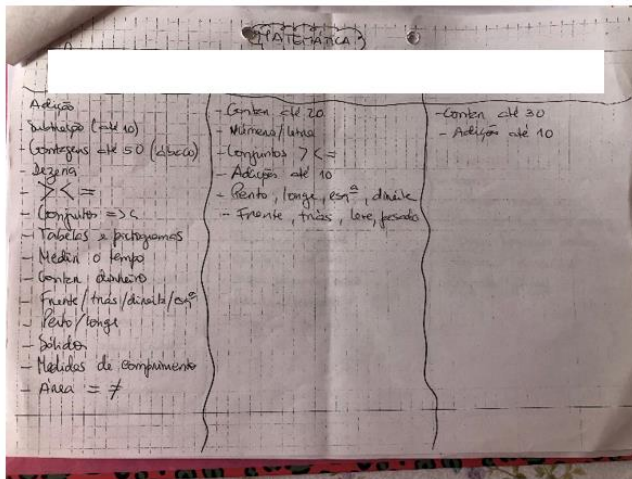 MATEMÁTICA
Adição
- Subtração (até 10)
- Contagens até 50 (ábaco)
- Dezena
- > < =
- Conjuntos = > <
- Tabelas e pictogramas
- Medir o tempo
- Contar dinheiro
- Frente/trás/direita/esqª
- Perto/longe
- Sólidos
- Medidas de comprimento
- Área = ≠
- Contar até 20
- Número/
- Conjuntos > < =
- Adição até 10
- Perto, longe, esqª, direita
- Frente, trás, leve, pesado
- Contar até 30
- Adição até 10